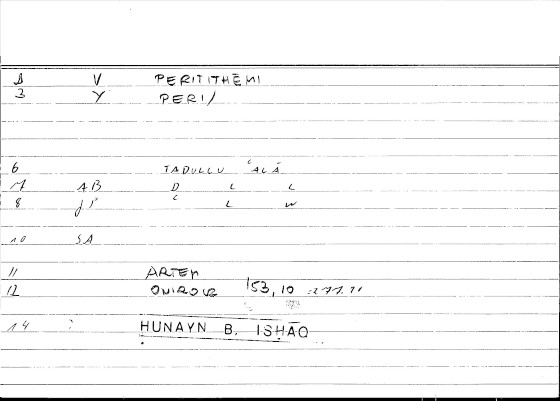 V PERITITHĒMI
3 Y PERI/
6 TADULLU ʿALĀ
AB D L L
8 ʿ L W
10 SA
11 ARTEM
12 ONIROCR 153, 10
14 HUNAYN B. ISHĀQ